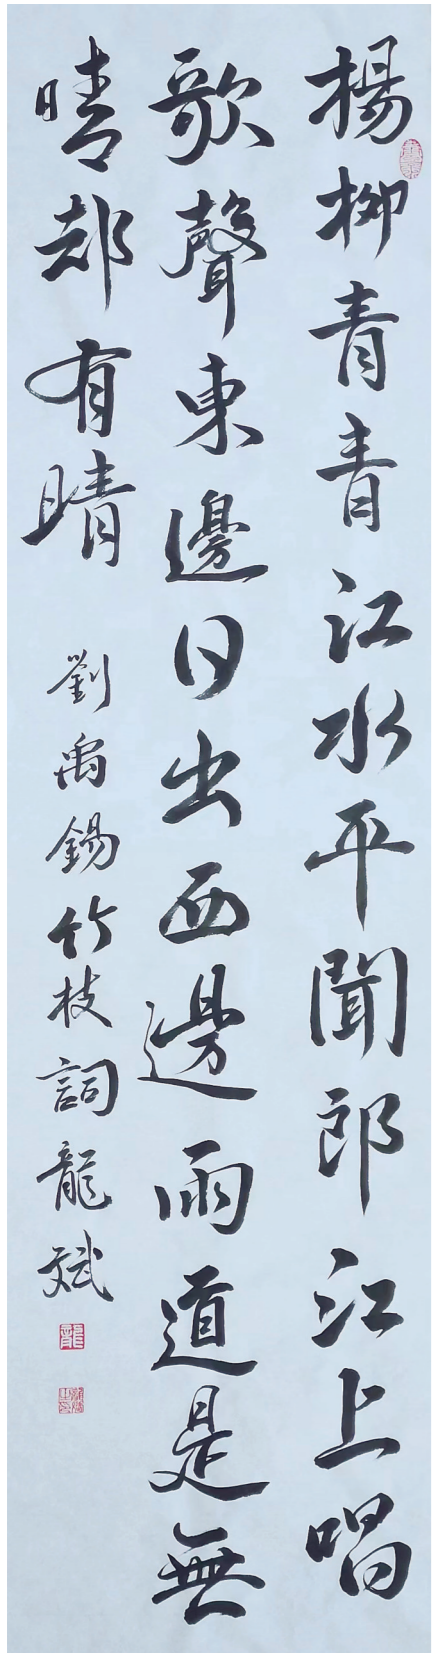 楊柳青青江水平聞郎江上唱
歌聲東邊日出西邊雨道是無
晴却有晴
劉禹錫竹枝詞龍斌
龍